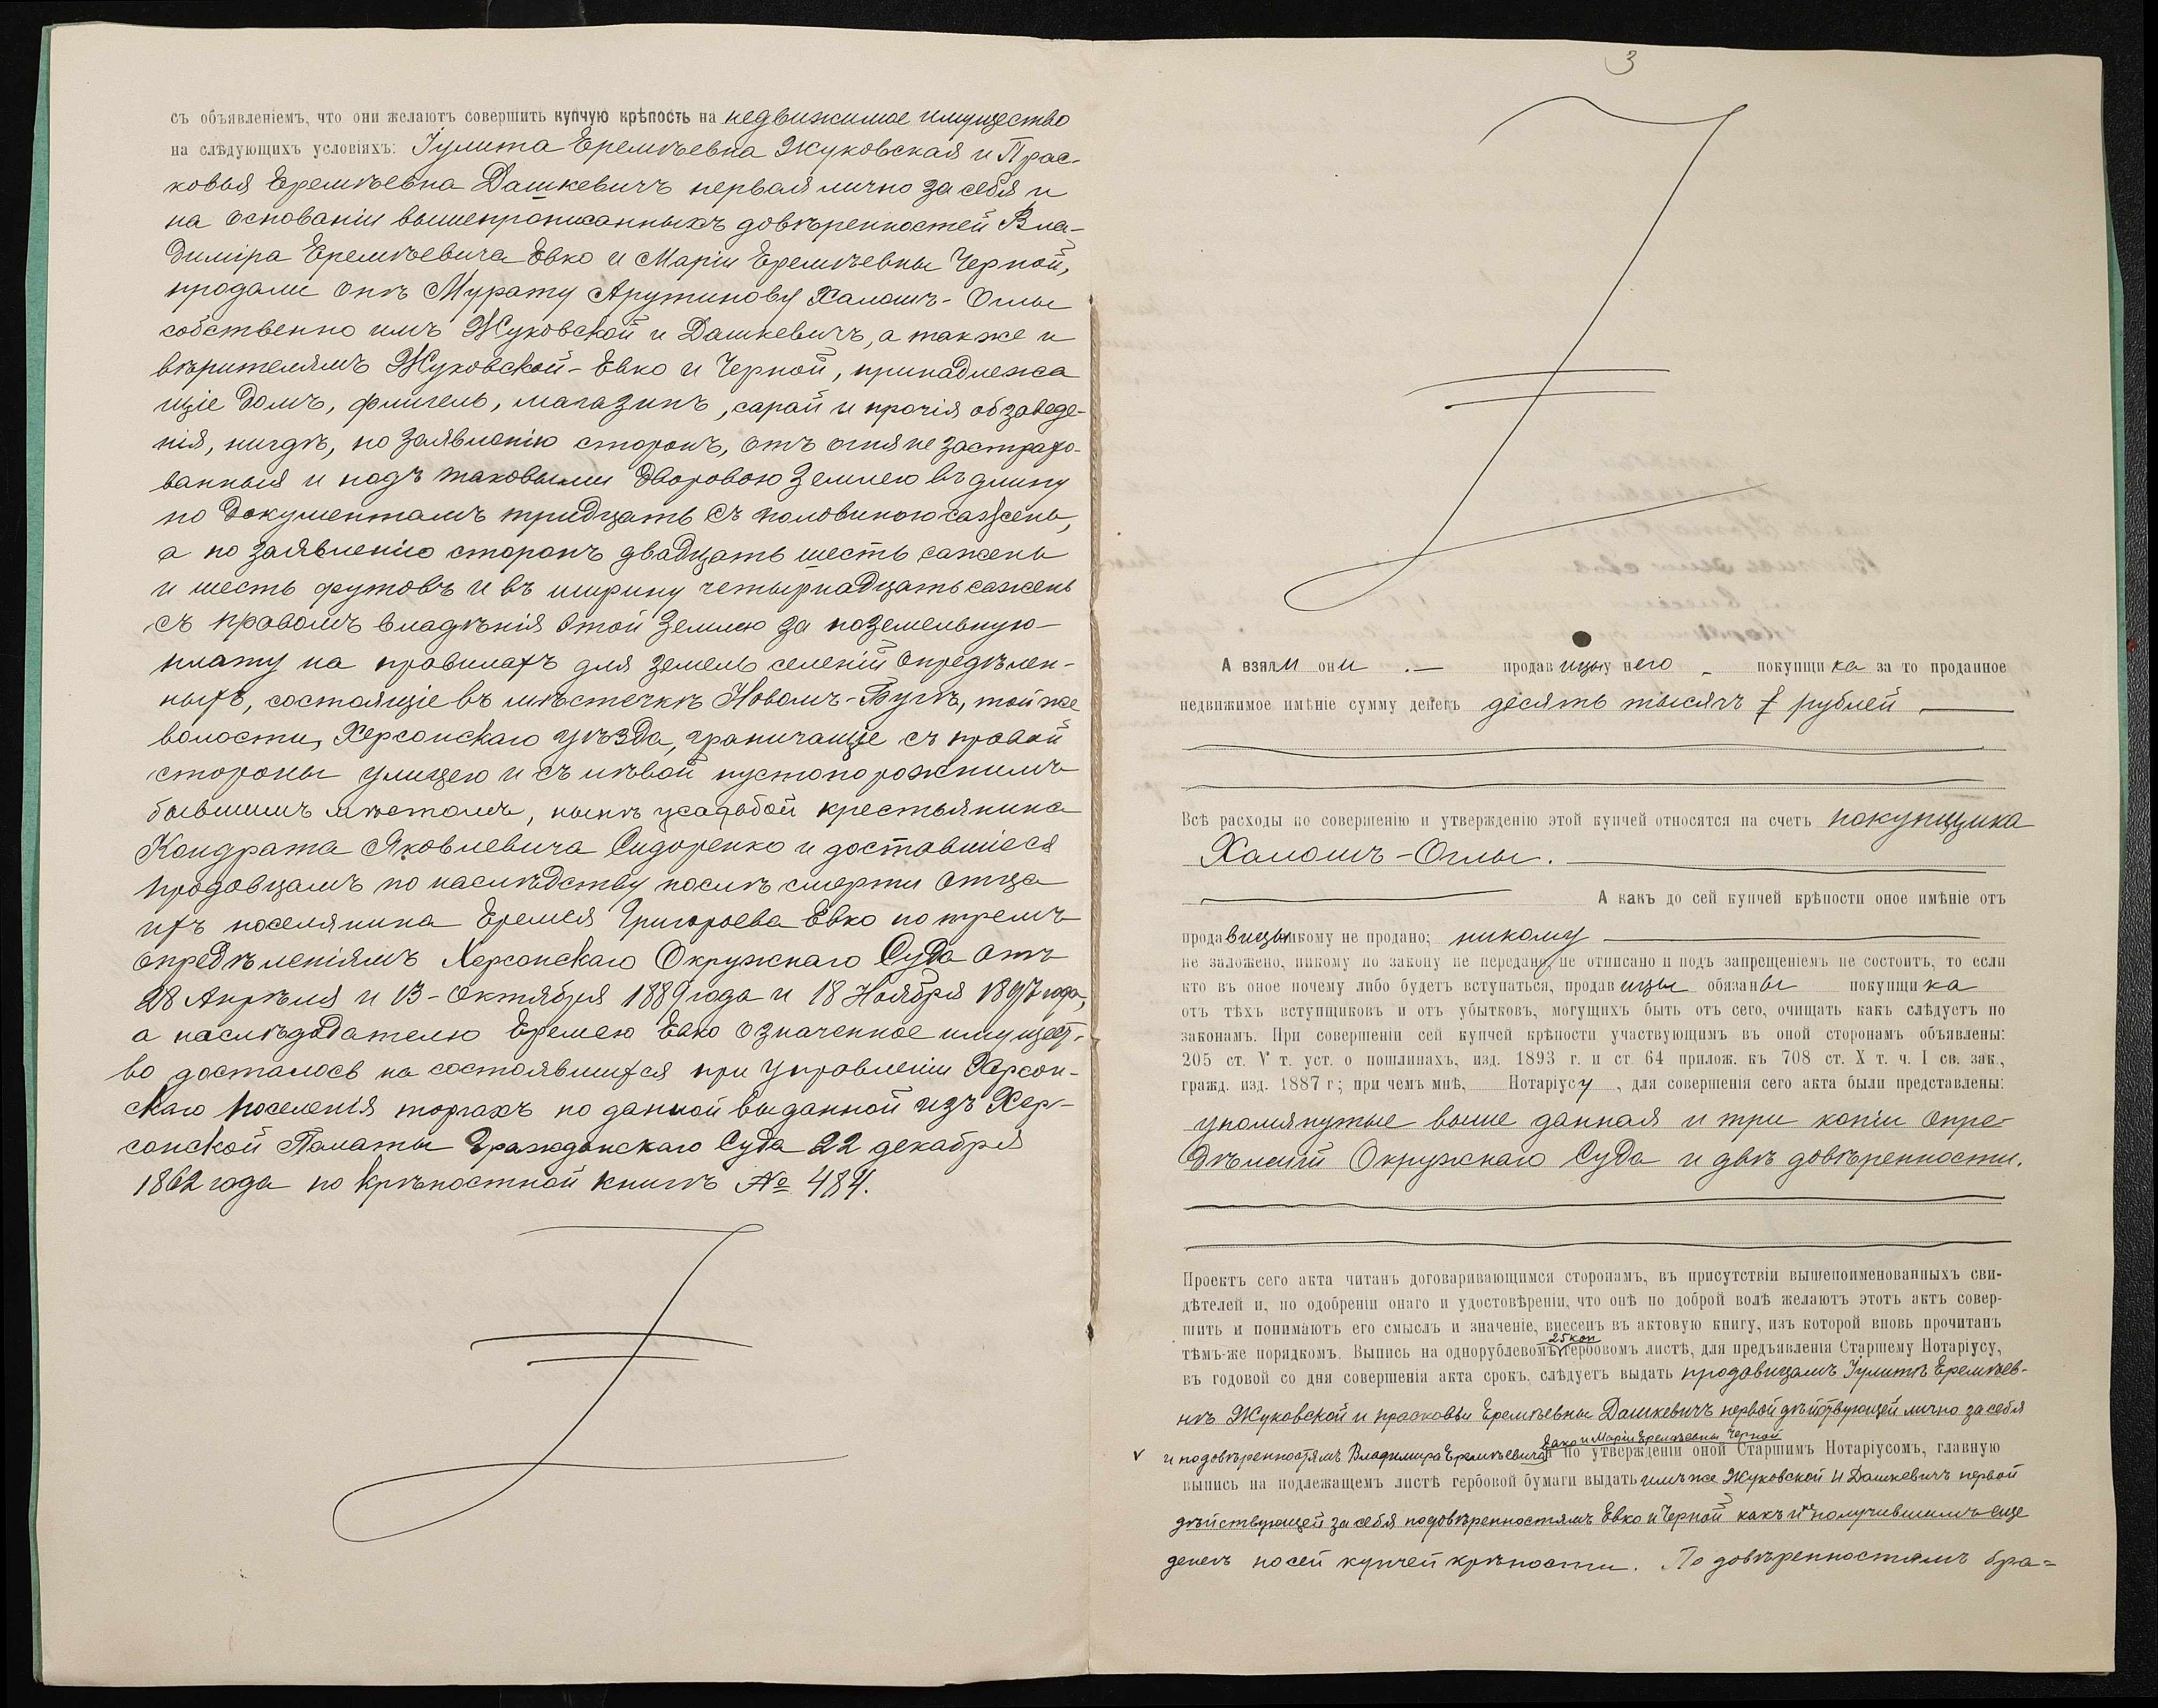 съ объявленіемъ, что они желаютъ совершить купчую крѣпость на недвижимое имущество
на слѣдующихъ условіяхъ: Іулита Еремѣевна Жуковская и Прас-
ковья Еремѣевна Дашкевичъ первая лично за себя и
на основаніи вышепрописанныхъ довѣренностей Вла-
диміра Еремѣевича Евко и Маріи Еремѣевны Черной,
продали онѣ Мурату Арутинову Халошъ-Оглы
собственно имъ Жуковской и Дашкевичъ, а также и
вѣрителямъ Жуковской - Евко и Черной, принадлежа
щіе домъ, флигель, магазинъ, сарай и прочія обзаведе-
нія, нигдѣ, по заявленію сторонъ, отъ огня не застрахо-
ванныя и подъ таковыми дворовою землею въ длину
по документамъ тридцать съ половиною сажень,
а по заявленію сторонъ двадцать шесть сажень
и шесть футовъ и въ ширину четырнадцать сажень
съ правомъ владѣнія этой землею за поземельную
плату на правилахъ для земель селеній опредѣлен-
ныхъ, состоящіе въ мѣстечкѣ Новомъ-Бугѣ, той же
волости, Херсонскаго уѣзда, граничащіе съ правой
стороны улицею и съ лѣвой пустопорожнимъ
бывшимъ мѣстомъ, нынѣ усадьбой крестьянина
Кондрата Яковлевича Сидоренко и доставшіеся
продавцамъ по наслѣдству послѣ смерти отца
ихъ поселянина Еремея Григорьева Евко по тремъ
опредѣленіямъ Херсонскаго Окружнаго Суда отъ
28 Апрѣля и 13 - Октября 1889 года и 18 Ноября 1897 года,
а наслѣдодателю Еремею Евко означенное имущест-
во досталось на состоявшихся при Управленіи Херсон-
скаго поселенія торгахъ по данной выданной изъ Хер-
сонской Палаты Гражданскаго Суда 22 декабря
1862 года по крѣпостной книгѣ № 484.
3
А взяли они . — продавицы у него - покупщика за то проданное
недвижимое имѣніе сумму денегъ десять тысячъ рублей
Всѣ расходы по совершенію и утвержденію этой купчей относятся на счетъ покупщика
Халошъ-Оглы.
А какъ до сей купчей крѣпости оное имѣніе отъ
продавицы никому не продано; никому
не заложено, никому по закону не передано, не отписано и подъ запрещеніемъ не состоитъ, то если
кто въ оное почему либо будетъ вступаться, продавицы обязаны покупщика
отъ тѣхъ вступщиковъ и отъ убытковъ, могущихъ быть отъ сего, очищать какъ слѣдуетъ по
законамъ. При совершеніи сей купчей крѣпости участвующимъ въ оной сторонамъ объявлены:
205 ст. V т. уст. о пошлинахъ, изд. 1893 г. и ст. 64 прилож. къ 708 ст. X т. ч. I св. зак.,
гражд. изд. 1887 г; при чемъ мнѣ, Нотаріусу, для совершенія сего акта были представлены:
упомянутые выше данная и три копіи опре-
дѣленій Окружнаго Суда и двѣ довѣренности.
Проектъ сего акта читанъ договаривающимся сторонамъ, въ присутствіи вышепоименованныхъ сви-
дѣтелей и, по одобреніи онаго и удостовѣреніи, что онѣ по доброй волѣ желаютъ этотъ актъ совер-
шить и понимаютъ его смыслъ и значеніе, внесенъ въ актовую книгу, изъ которой вновь прочитанъ
25 коп
тѣмъ-же порядкомъ. Выпись на однорублевомъ гербовомъ листѣ, для предъявленія Старшему Нотаріусу,
въ годовой со дня совершенія акта срокъ, слѣдуетъ выдать продавицамъ Іулитѣ Еремѣев-
нѣ Жуковской и Прасковьи Еремѣевны Дашкевичъ первой дѣйствующей лично за себя
Евко и Маріи Еремѣевны Черной
v и по довѣренностямъ Владиміра Еремѣевича по утвержденіи оной Старшимъ Нотаріусомъ, главную
выпись на подлежащемъ листѣ гербовой бумаги выдать имъ же Жуковской и Дашкевичъ первой
дѣйствующей за себя по довѣренностямъ Евко и Черной какъ не получившимъ еще
денегъ по сей купчей крѣпости. По довѣренностямъ бра=